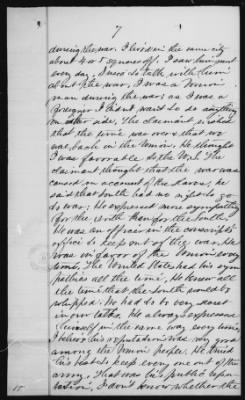 7
during the war. I lived in the same city
about 4 or 5 squares off. I saw him most
every day. I used to talk with him
about the war, I was a Union
man during the war; as I was a
foreigner I didn't want to do anything
on either side. The claimant wished
that the time was over & that we
was back in the Union. He thought
I was favorable to the U.S. The
claimant thought that the war was
caused on account of the slaves; he
said that South had no right to go
to war; He expressed more sympathy
for the North than for the South.
He was an officer in the conscript
office to keep out of the war. He
was in favor of the Union every
time. The United States had his sym-
pathies all the time. He knew all
the time that the South would be
whipped. We had to be very secret
in our talks. He always expressed
himself in the same way every time
I believe his reputation was very good
among the Union people. He tried
his best to keep every one out of the
army. That was his public repu-
tation, I don't know whether the